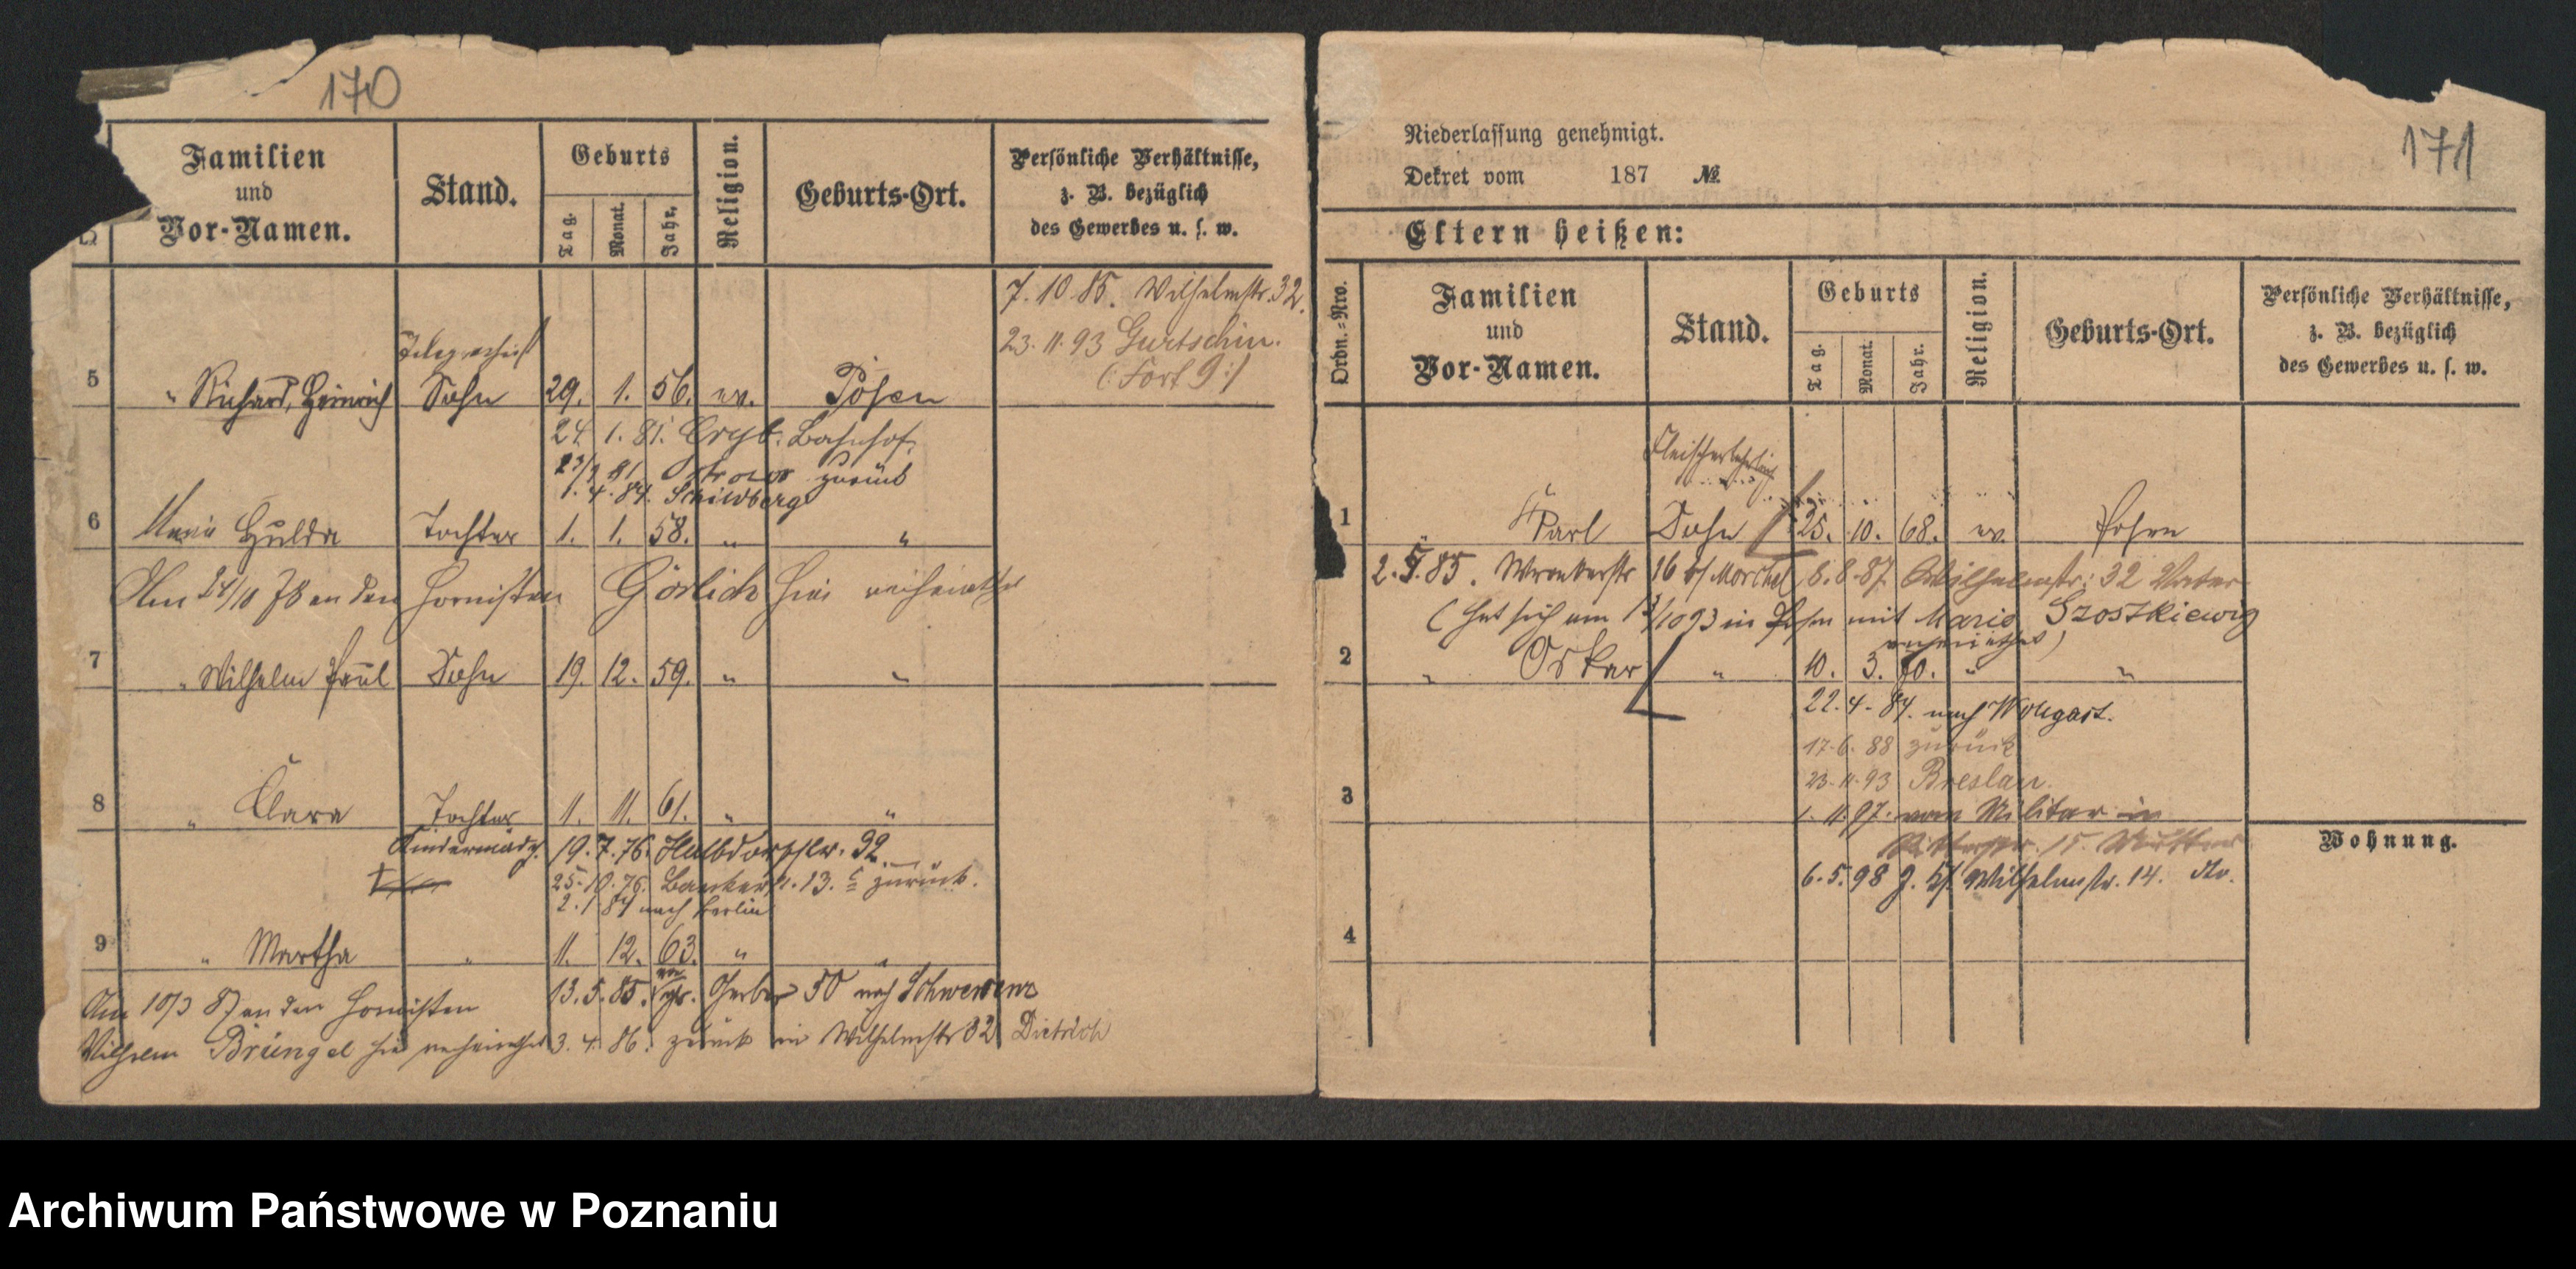 170
Familien
und
Vor-Namen.
Stand.
Geburts
Tag.
Monat.
Jahr.
Religion.
Geburts-Ort.
Persönliche Verhältnisse,
z. B. bezüglich
des Gewerbes u. s. w.
7. 10. 85. Wilhelmstr. 32.
23. 11. 93 Gurtschin.
(: Fort 9 :)
Telegraphist
5 " Richard, Heinrich Sohn 29. 1. 56. ev. Posen
24. 1. 81. Bahnhof.
Ostrowo zurück
1. 4. 84. Schildberg
6 Maria Hulda Tochter 1. 1. 58. " "
Am 24/10 78 an den Hornisten Görlich hier verheirathet
7 " Wilhelm Paul Sohn 19. 12. 59. " "
8 " Clara Tochter 11. 11. 61. " "
Kindermädch. 19. 7. 76. Halbdorfstr. 32.
25. 10. 76. 13. zurück.
2. 1. 84 nach Berlin
9 " Martha " 11. 12. 63. " "
13. 5. 85. Gerber 50 nach Schwersenz
Am 10/3 87 an den Hornisten
Wilhelm Brüngel hier verheirathet 3. 4. 86. zurück in Wilhelmstr 32 Dietrich
171
Niederlassung genehmigt.
Dekret vom 187 №
Eltern heißen:
Ordn.-Nro.
Familien
und
Vor-Namen.
Stand.
Geburts
Tag.
Monat.
Jahr.
Religion.
Geburts-Ort.
Persönliche Verhältnisse,
z. B. bezüglich
des Gewerbes u. s. w.
Fleischerlehrling
1 " Karl Sohn 25. 10. 68. ev. Posen
2. 5. 85. Wronkerstr 16 b/ Morchel 8. 8. 87. Wilhelmstr. 32 Vater
(hat sich am in Posen mit Maria Szostkiewicz
verheirathet)
2 " Oskar " 10. 3. 70. " "
22. 4. 84. nach Wolgast.
17. 6. 88 zurück
23. 11. 93 Breslau.
3
1. 11. 97. vom Militär in
15. Mutter
Wohnung.
6. 5. 98 Wilhelmstr. 14.
4
Archiwum Państwowe w Poznaniu